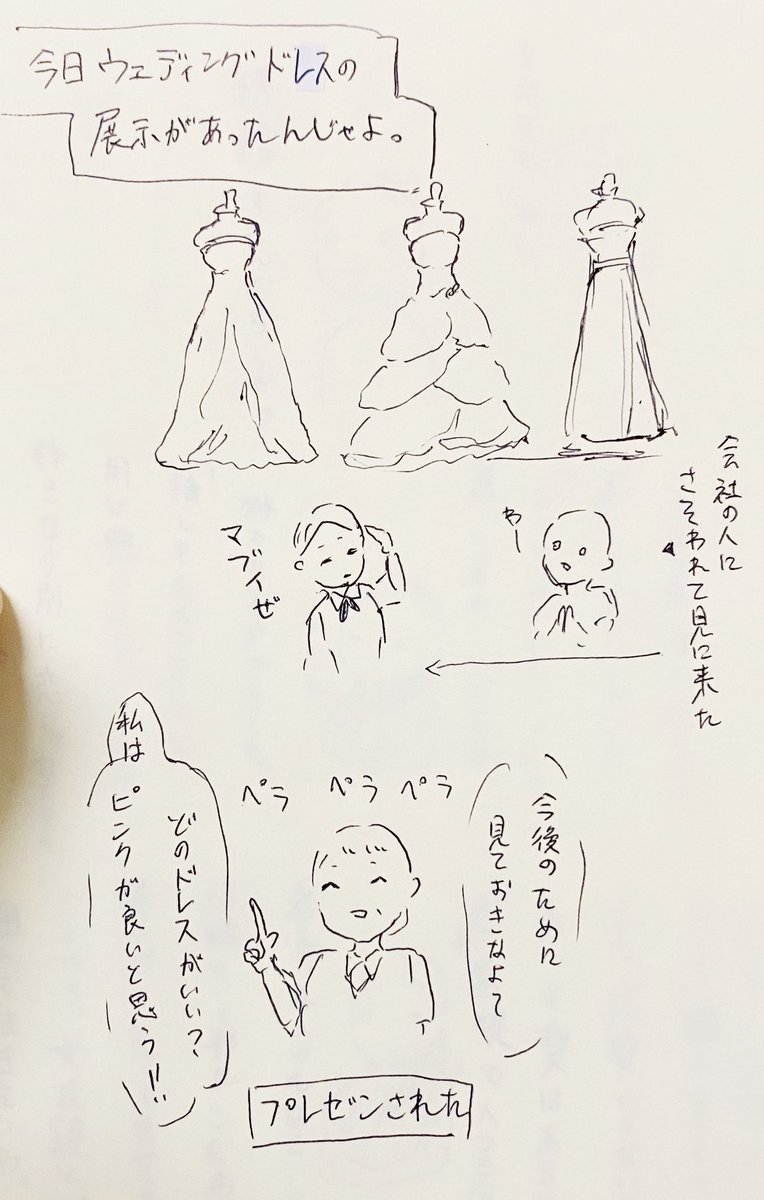 今日ウェディングドレスの
展示があったんじゃよ。
会社の人に
さそわれて見に来た
わー
マブイぜ
今後のために
見ておきなよて
ペラ ペラ ペラ
どのドレスがいい?
私は
ピンクが良いと思う!!
プレゼンされた